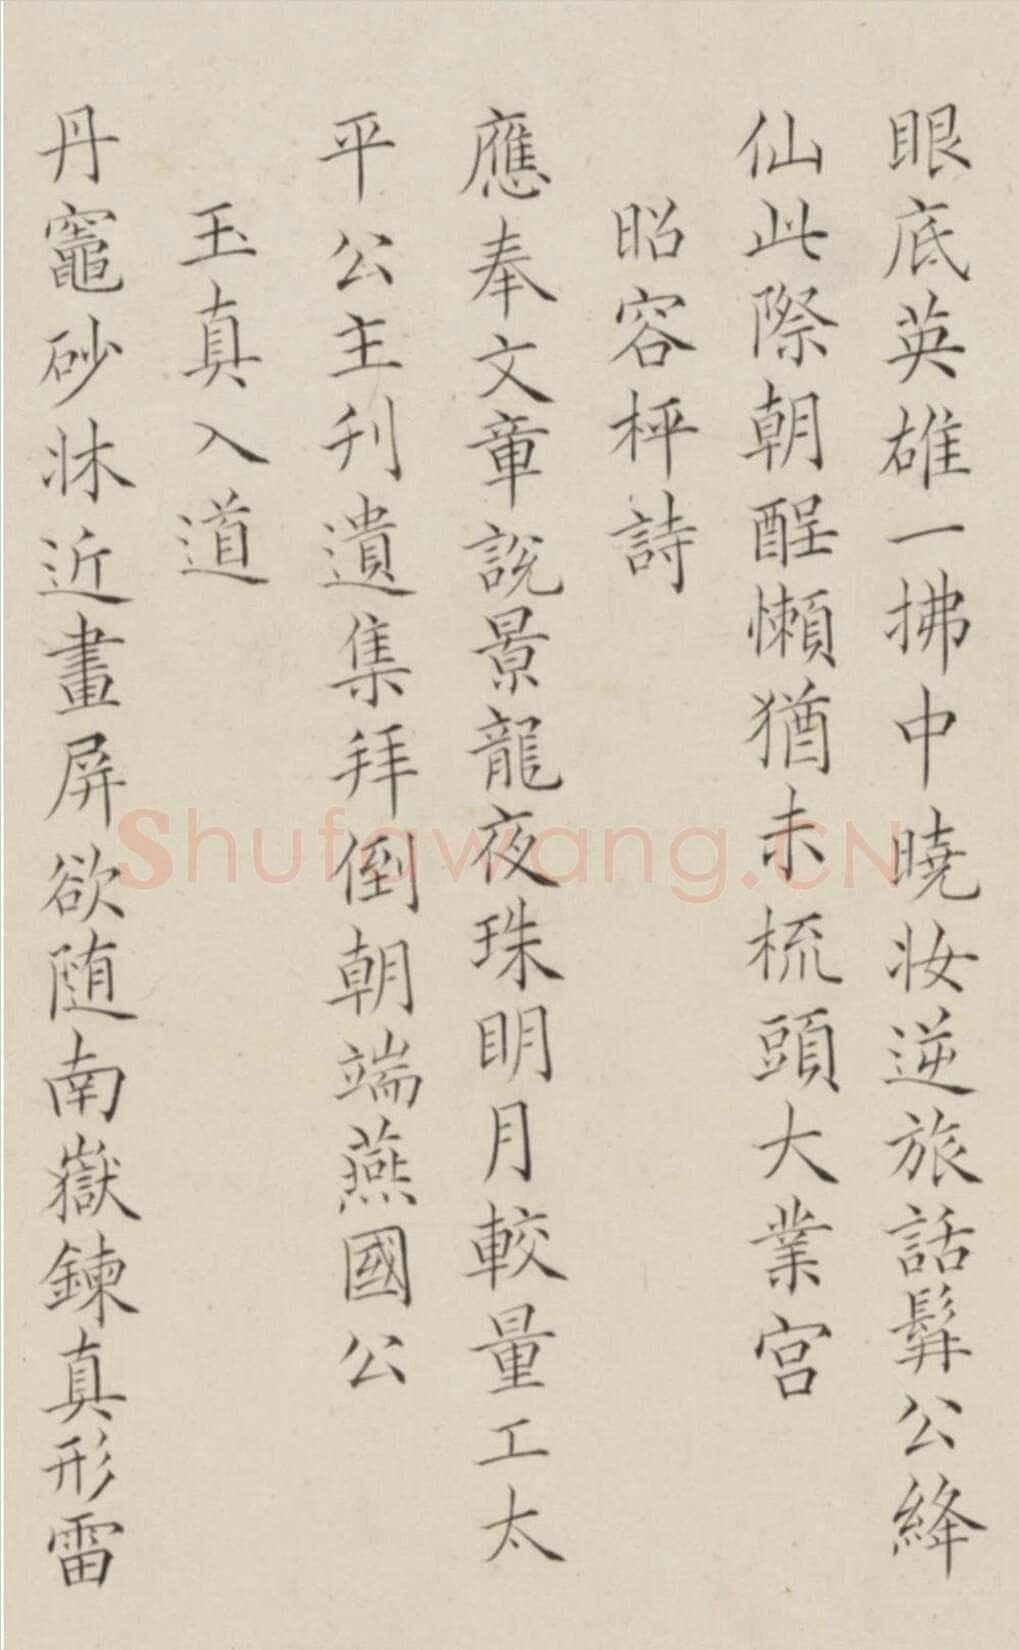 眼底英雄一拂中曉妝逆旅話髯公絳
仙此際朝酲懶猶未梳頭大業宮
昭容枰詩
應奉文章說景龍夜珠明月較量工太
平公主刊遺集拜倒朝端燕國公
玉真入道
丹竈砂牀近畫屏欲随南嶽鍊真形雷
Shufawang.CN